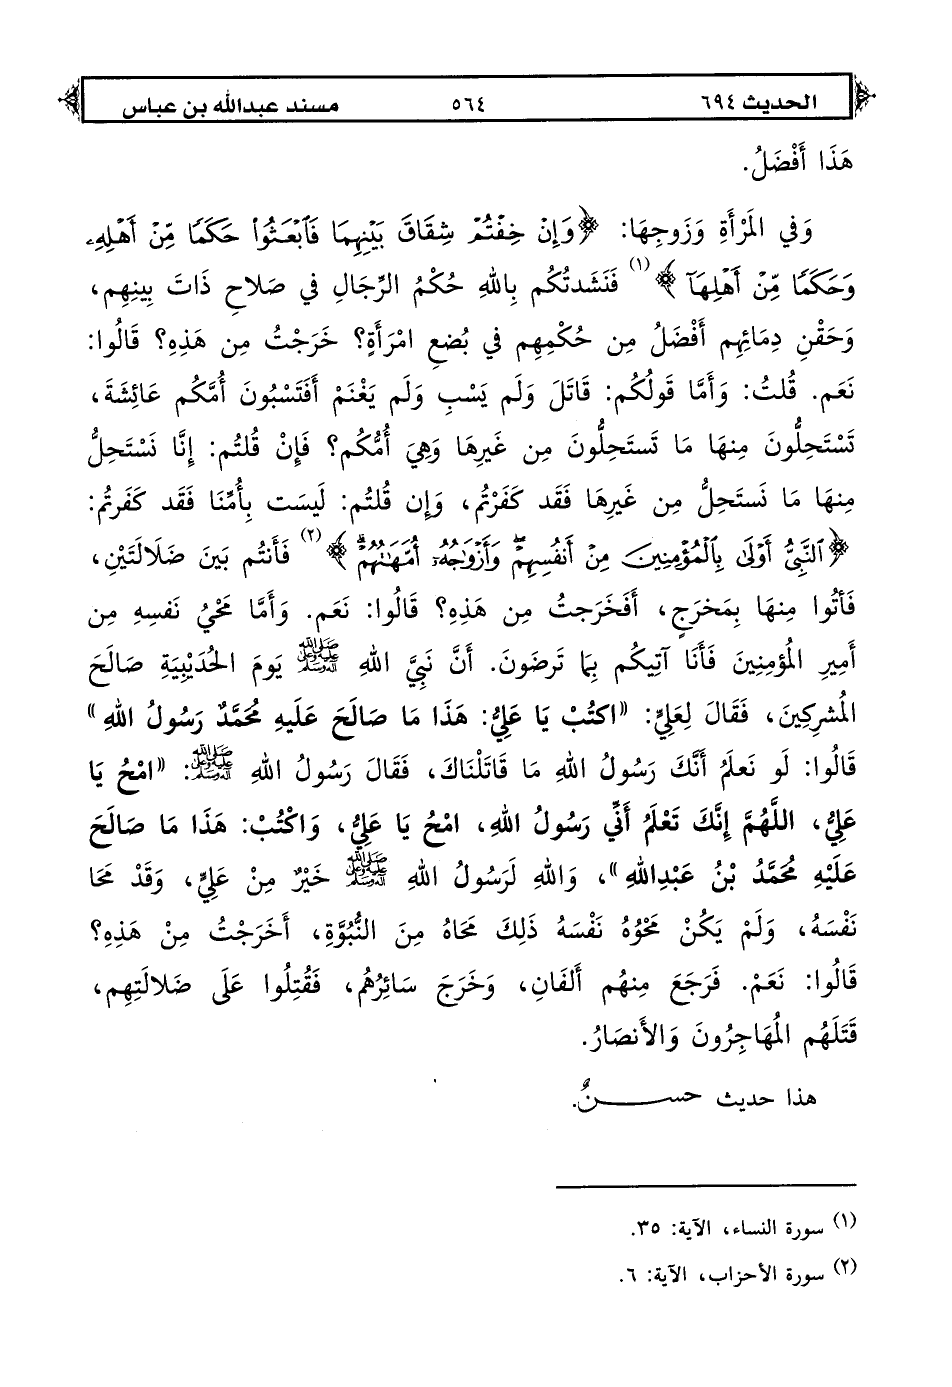 الحديث ٦٩٤ ٥٦٤ مسند عبدالله بن عباس
هَذَا أَفْضَلُ.
وَفي المَرْأَةِ وَزَوجِهَا: ﴿وَإِنْ خِفْتُمْ شِقَاقَ بَيْنِهِمَا فَٱبْعَثُوا۟ حَكَمًا مِّنْ أَهْلِهِۦ
وَحَكَمًا مِّنْ أَهْلِهَآ﴾(١) فَنَشَدتُكُم بِاللهِ حُكْمُ الرِّجَالِ في صَلاحِ ذَاتَ بِينِهِم،
وَحَقْنِ دِمَائِهِم أَفْضَلُ مِن حُكْمِهِم في بُضعِ امْرَأَةٍ؟ خَرَجْتُ مِن هَذِهِ؟ قَالُوا:
نَعَم. قُلتُ: وَأَمَّا قَولُكُم: قَاتَلَ وَلَم يَسْبِ وَلَم يَغْنَمْ أَفَتَسْبُونَ أُمَّكُم عَائِشَةَ،
تَسْتَحِلُّونَ مِنهَا مَا تَستَحِلُّونَ مِن غَيرِهَا وَهِيَ أُمُّكُم؟ فَإِنْ قُلتُم: إِنَّا نَسْتَحِلُّ
مِنهَا مَا نَستَحِلُّ مِن غَيرِهَا فَقَد كَفَرْتُم، وَإِن قُلتُم: لَيسَت بِأُمِّنَا فَقَد كَفَرتُم:
﴿ٱلنَّبِىُّ أَوْلَىٰ بِٱلْمُؤْمِنِينَ مِنْ أَنفُسِهِمْ ۖ وَأَزْوَٰجُهُۥٓ أُمَّهَٰتُهُمْ ۗ﴾(٢) فَأَنتُم بَينَ ضَلَالَتَيْنِ،
فَأتُوا مِنهَا بِمَخرَجٍ، أَفَخَرَجتُ مِن هَذِهِ؟ قَالُوا: نَعَم. وَأَمَّا مَحْيُ نَفسِهِ مِن
أَمِيرِ المُؤمِنِينَ فَأَنَا آتِيكُم بِمَا تَرضَونَ. أَنَّ نَبِيَّ اللهِ ﷺ يَومَ الحُدَيْبِيَةِ صَالَحَ
المُشرِكِينَ، فَقَالَ لِعَلِيٍّ: «اكتُبْ يَا عَلِيُّ: هَذَا مَا صَالَحَ عَلَيهِ مُحَمَّدٌ رَسُولُ اللهِ»
قَالُوا: لَو نَعلَمُ أَنَّكَ رَسُولُ اللهِ مَا قَاتَلْنَاكَ، فَقَالَ رَسُولُ اللهِ ﷺ: «امْحُ يَا
عَلِيُّ، اللَّهُمَّ إِنَّكَ تَعْلَمُ أَنِّي رَسُولُ اللهِ، امْحُ يَا عَلِيُّ، وَاكْتُبْ: هَذَا مَا صَالَحَ
عَلَيْهِ مُحَمَّدُ بْنُ عَبْدِاللهِ»، وَاللهِ لَرَسُولُ اللهِ ﷺ خَيْرٌ مِنْ عَلِيٍّ، وَقَدْ مَحَا
نَفْسَهُ، وَلَمْ يَكُنْ مَحْوُهُ نَفْسَهُ ذَلِكَ مَحَاهُ مِنَ النُّبُوَّةِ، أَخَرَجْتُ مِنْ هَذِهِ؟
قَالُوا: نَعَمْ. فَرَجَعَ مِنهُم أَلفَانِ، وَخَرَجَ سَائِرُهُم، فَقُتِلُوا عَلَى ضَلالَتِهِم،
قَتَلَهُم المُهَاجِرُونَ وَالأَنصَارُ.
هذا حديث حســـــنٌ.
(١) سورة النساء، الآية: ٣٥.
(٢) سورة الأحزاب، الآية: ٦.